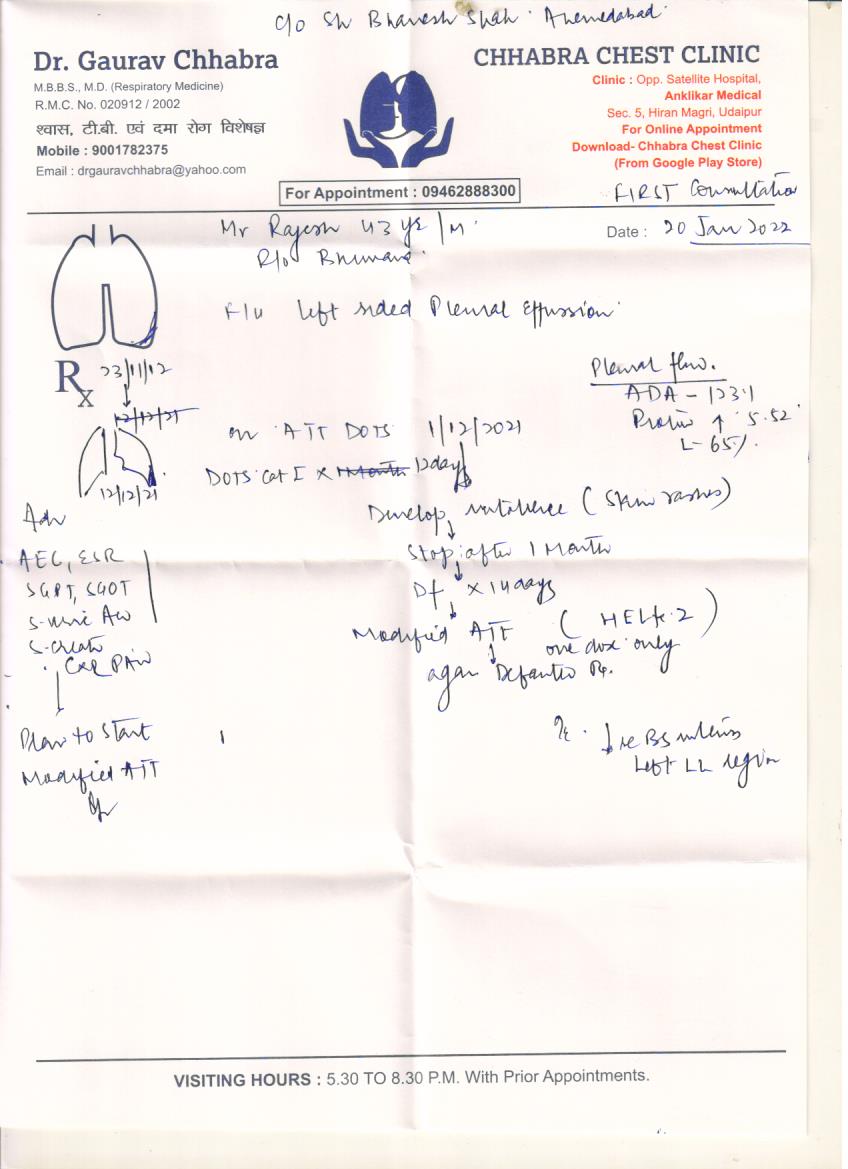 c/o Sh Bhavesh Shah. Ahemedabad
Dr. Gaurav Chhabra
M.B.B.S., M.D. (Respiratory Medicine)
R.M.C. No. 020912 / 2002
श्वास, टी.बी. एवं दमा रोग विशेषज्ञ
Mobile : 9001782375
Email : drgauravchhabra@yahoo.com
CHHABRA CHEST CLINIC
Clinic : Opp. Satellite Hospital,
Anklikar Medical
Sec. 5, Hiran Magri, Udaipur
For Online Appointment
Download- Chhabra Chest Clinic
(From Google Play Store)
For Appointment : 09462888300
FIRST Consultation
Mr Rajesh 43 yr / M
Date : 20 Jan 2022
R/o
F/u left sided Pleural Effussion
Rx
Pleural
ADA - 123.1
Protein ↑ 5.52
L - 65%
12/12/21
on ATT DOTS 1/12/2021
DOTS Cat I x 1 Month 12 days
12/12/21
Adv
Develop (Skin rashes)
AEC, ESR
Stop after 1 Month
SGPT, SGOT
x 14 days
Modified ATT
one dose only
S-Creat
CXR PA
again Rx.
Plan to Start
Modified ATT
↓ BS
Left LL region
VISITING HOURS : 5.30 TO 8.30 P.M. With Prior Appointments.